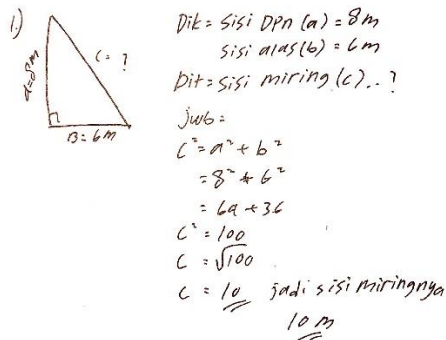 1.)
a=8m
c = ?
B=6m
Dik = sisi DPn (a) = 8m
sisi alas (b) = 6m
Dit = sisi miring (c) . . ?
jwb =
c² = a² + b²
= 8² + 6²
= 64 + 36
c² = 100
c = √100
c = 10 jadi sisi miringnya
10 m